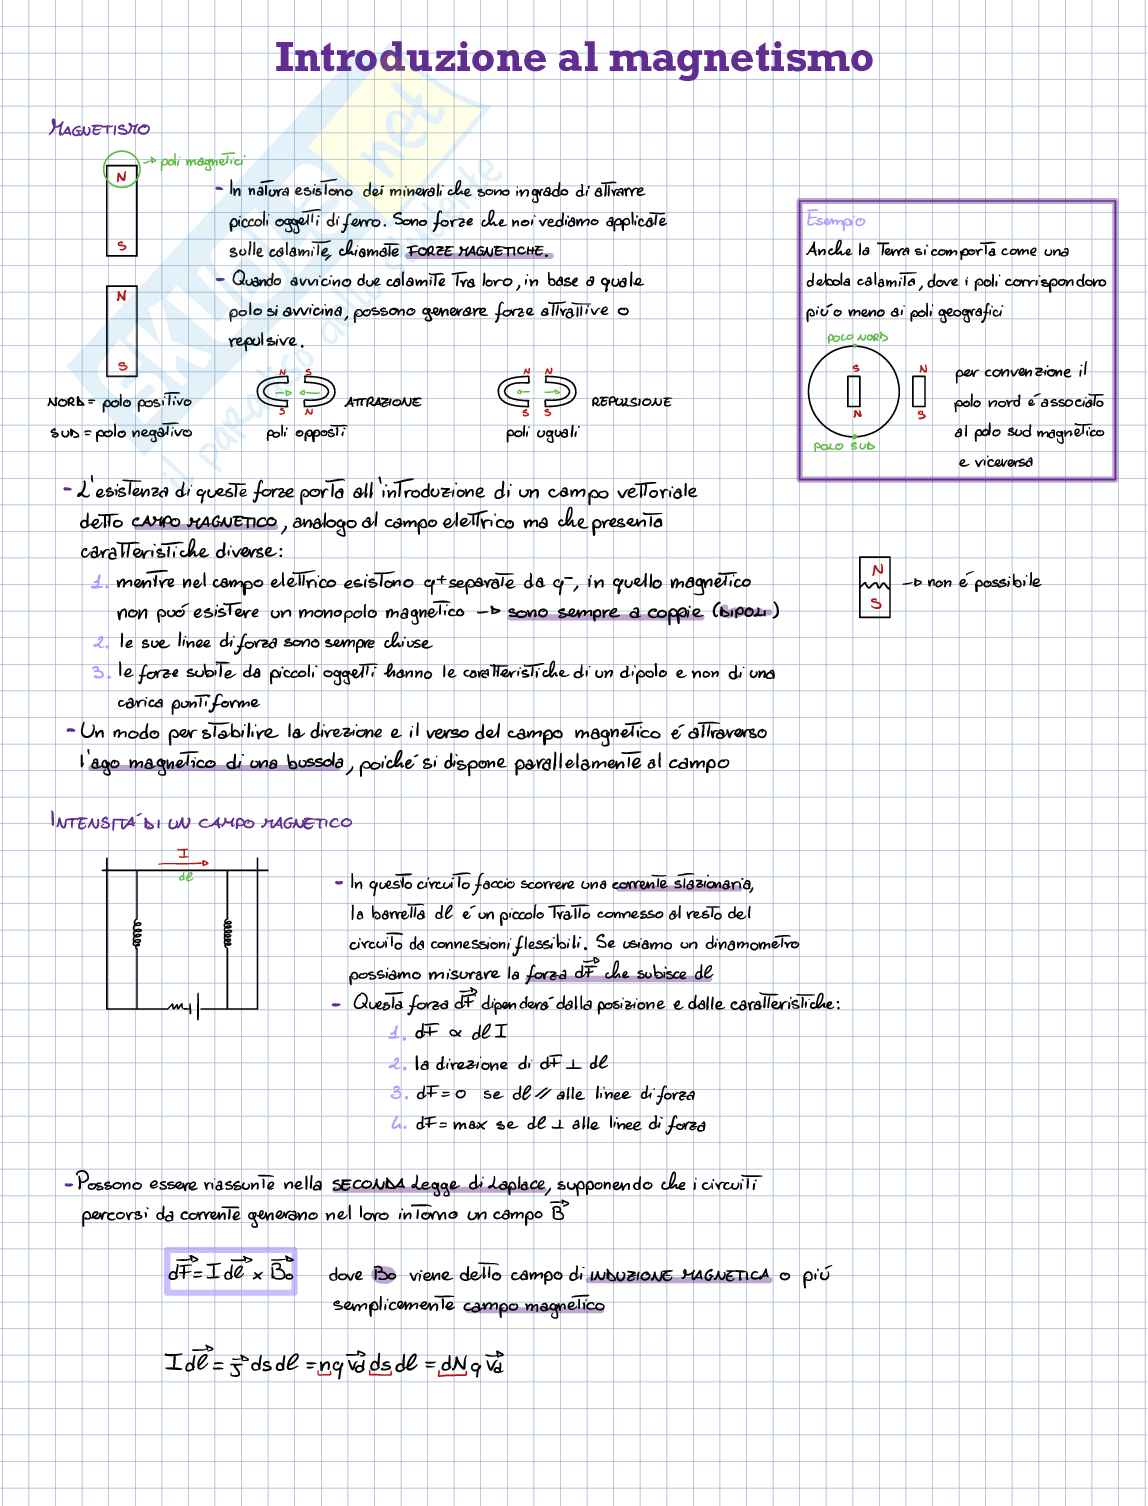 Introduzione al magnetismo
MAGNETISMO
→ poli magnetici
N
S
N
S
NORD = polo positivo
SUD = polo negativo
- In natura esistono dei minerali che sono in grado di attrarre
piccoli oggetti di ferro. Sono forze che noi vediamo applicate
sulle calamite, chiamate FORZE MAGNETICHE.
- Quando avvicino due calamite tra loro, in base a quale
polo si avvicina, possono generare forze attrattive o
repulsive.
N S
S N
ATTRAZIONE
poli opposti
N N
S S
REPULSIONE
poli uguali
Esempio
Anche la Terra si comporta come una
debola calamita, dove i poli corrispondoro
più o meno ai poli geografici
POLO NORD
S
N
N
S
POLO SUD
per convenzione il
polo nord é associato
al polo sud magnetico
e viceversa
- L'esistenza di queste forze porta all'introduzione di un campo vettoriale
detto CAMPO MAGNETICO, analogo al campo elettrico ma che presenta
caratteristiche diverse:
1. mentre nel campo elettrico esistono q+ separate da q-, in quello magnetico
non puó esistere un monopolo magnetico → sono sempre a coppie (DIPOLI)
N
S
→ non é possibile
2. le sue linee di forza sono sempre chiuse
3. le forze subite da piccoli oggetti hanno le caratteristiche di un dipolo e non di una
carica puntiforme
- Un modo per stabilire la direzione e il verso del campo magnetico é attraverso
l'ago magnetico di una bussola, poiché si dispone parallelamente al campo
INTENSITÁ DI UN CAMPO MAGNETICO
I
dl
- In questo circuito faccio scorrere una corrente stazionaria,
la barretta dl é un piccolo tratto connesso al resto del
circuito da connessioni flessibili. Se usiamo un dinamometro
possiamo misurare la forza d\vec{F} che subisce dl
- Questa forza d\vec{F} dipenderá dalla posizione e dalle caratteristiche:
1. dF ∝ dl I
2. la direzione di dF ⊥ dl
3. dF = 0 se dl // alle linee di forza
4. dF = max se dl ⊥ alle linee di forza
- Possono essere riassunte nella SECONDA Legge di Laplace, supponendo che i circuiti
percorsi da corrente generano nel loro intorno un campo \vec{B}
d\vec{F} = I d\vec{l} × \vec{B₀} dove B₀ viene detto campo di INDUZIONE MAGNETICA o piú
semplicemente campo magnetico
I d\vec{l} = \vec{J} ds dl = n q \vec{v_d} ds dl = dN q \vec{v_d}
SKUOLA.net
il paradiso dello studente